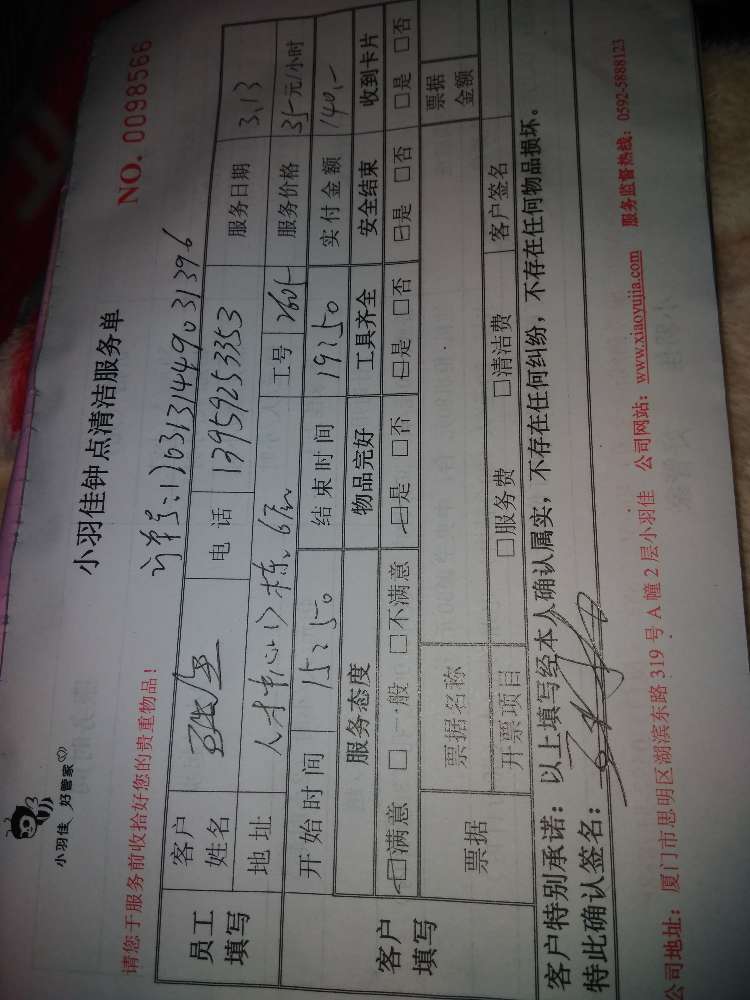 小羽佳 好管家
小羽佳钟点清洁服务单
请您于服务前收拾好您的贵重物品! NO. 0098566
订单号:1703131449031396
员工填写 客户姓名 电话 13959253353 服务日期 3.13
地址 人才中心 工号 2605 服务价格 35元/小时
客户填写 开始时间 15:50 结束时间 19:50 实付金额 140.-
服务态度 物品完好 工具齐全 安全结束 收到卡片
☑满意 □一般 □不满意 ☑是 □否 ☑是 □否 ☑是 □否 □是 □否
票据 票据名称 票据金额
开票项目 □服务费 □清洁费 客户签名
客户特别承诺:以上填写经本人确认属实,不存在任何纠纷,不存在任何物品损坏。
特此确认签名:
公司地址:厦门市思明区湖滨东路 319 号 A 幢 2 层小羽佳 公司网站:www.xiaoyujia.com 服务监督热线:0592-5888123